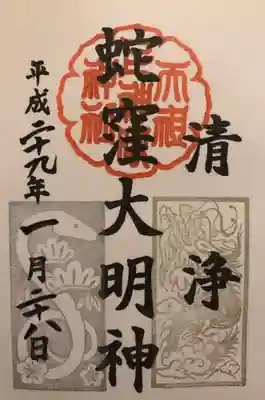 清浄
蛇窪大明神
平成二十九年一月二十八日